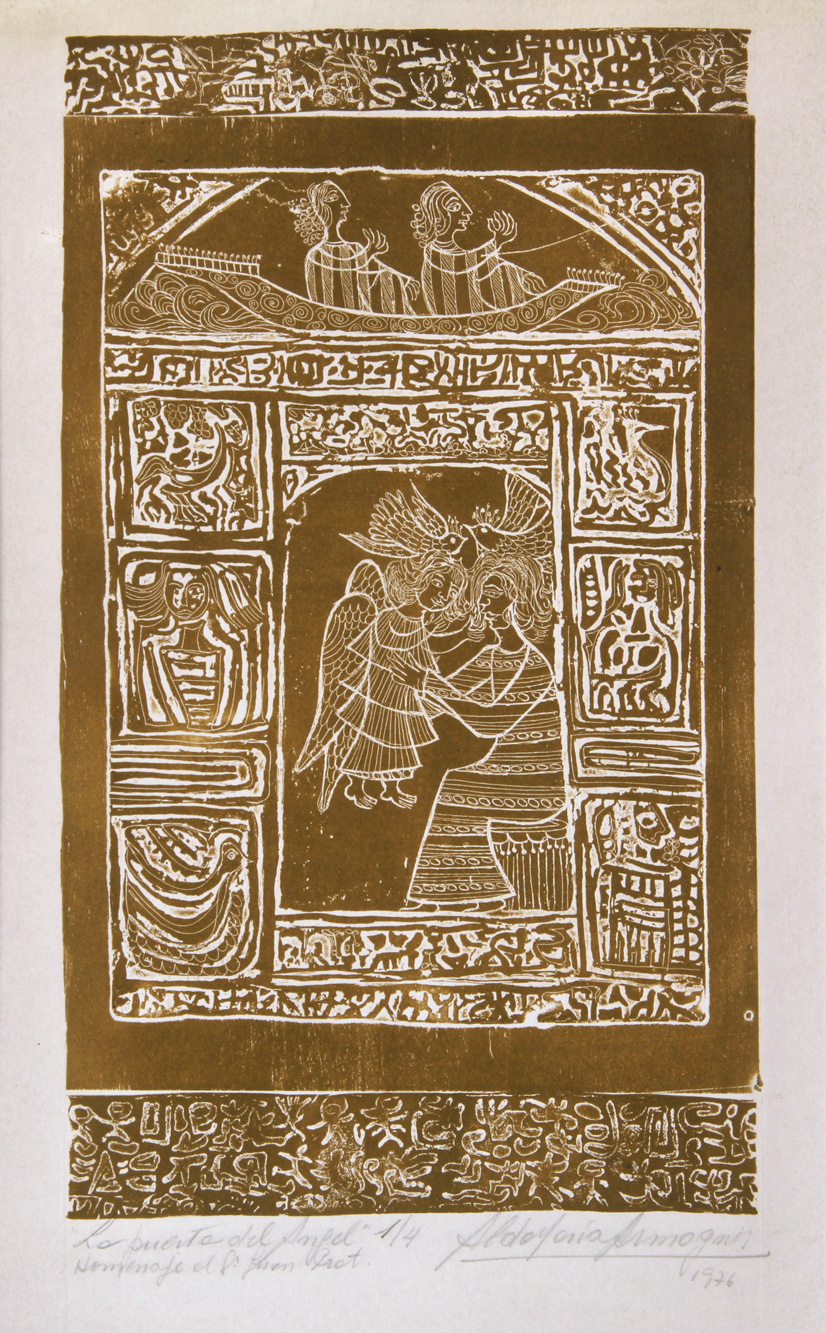 "La puerta del Angel" 1/4
Homenaje al Sr Juan Prat.
Aldo María Armagni
1976